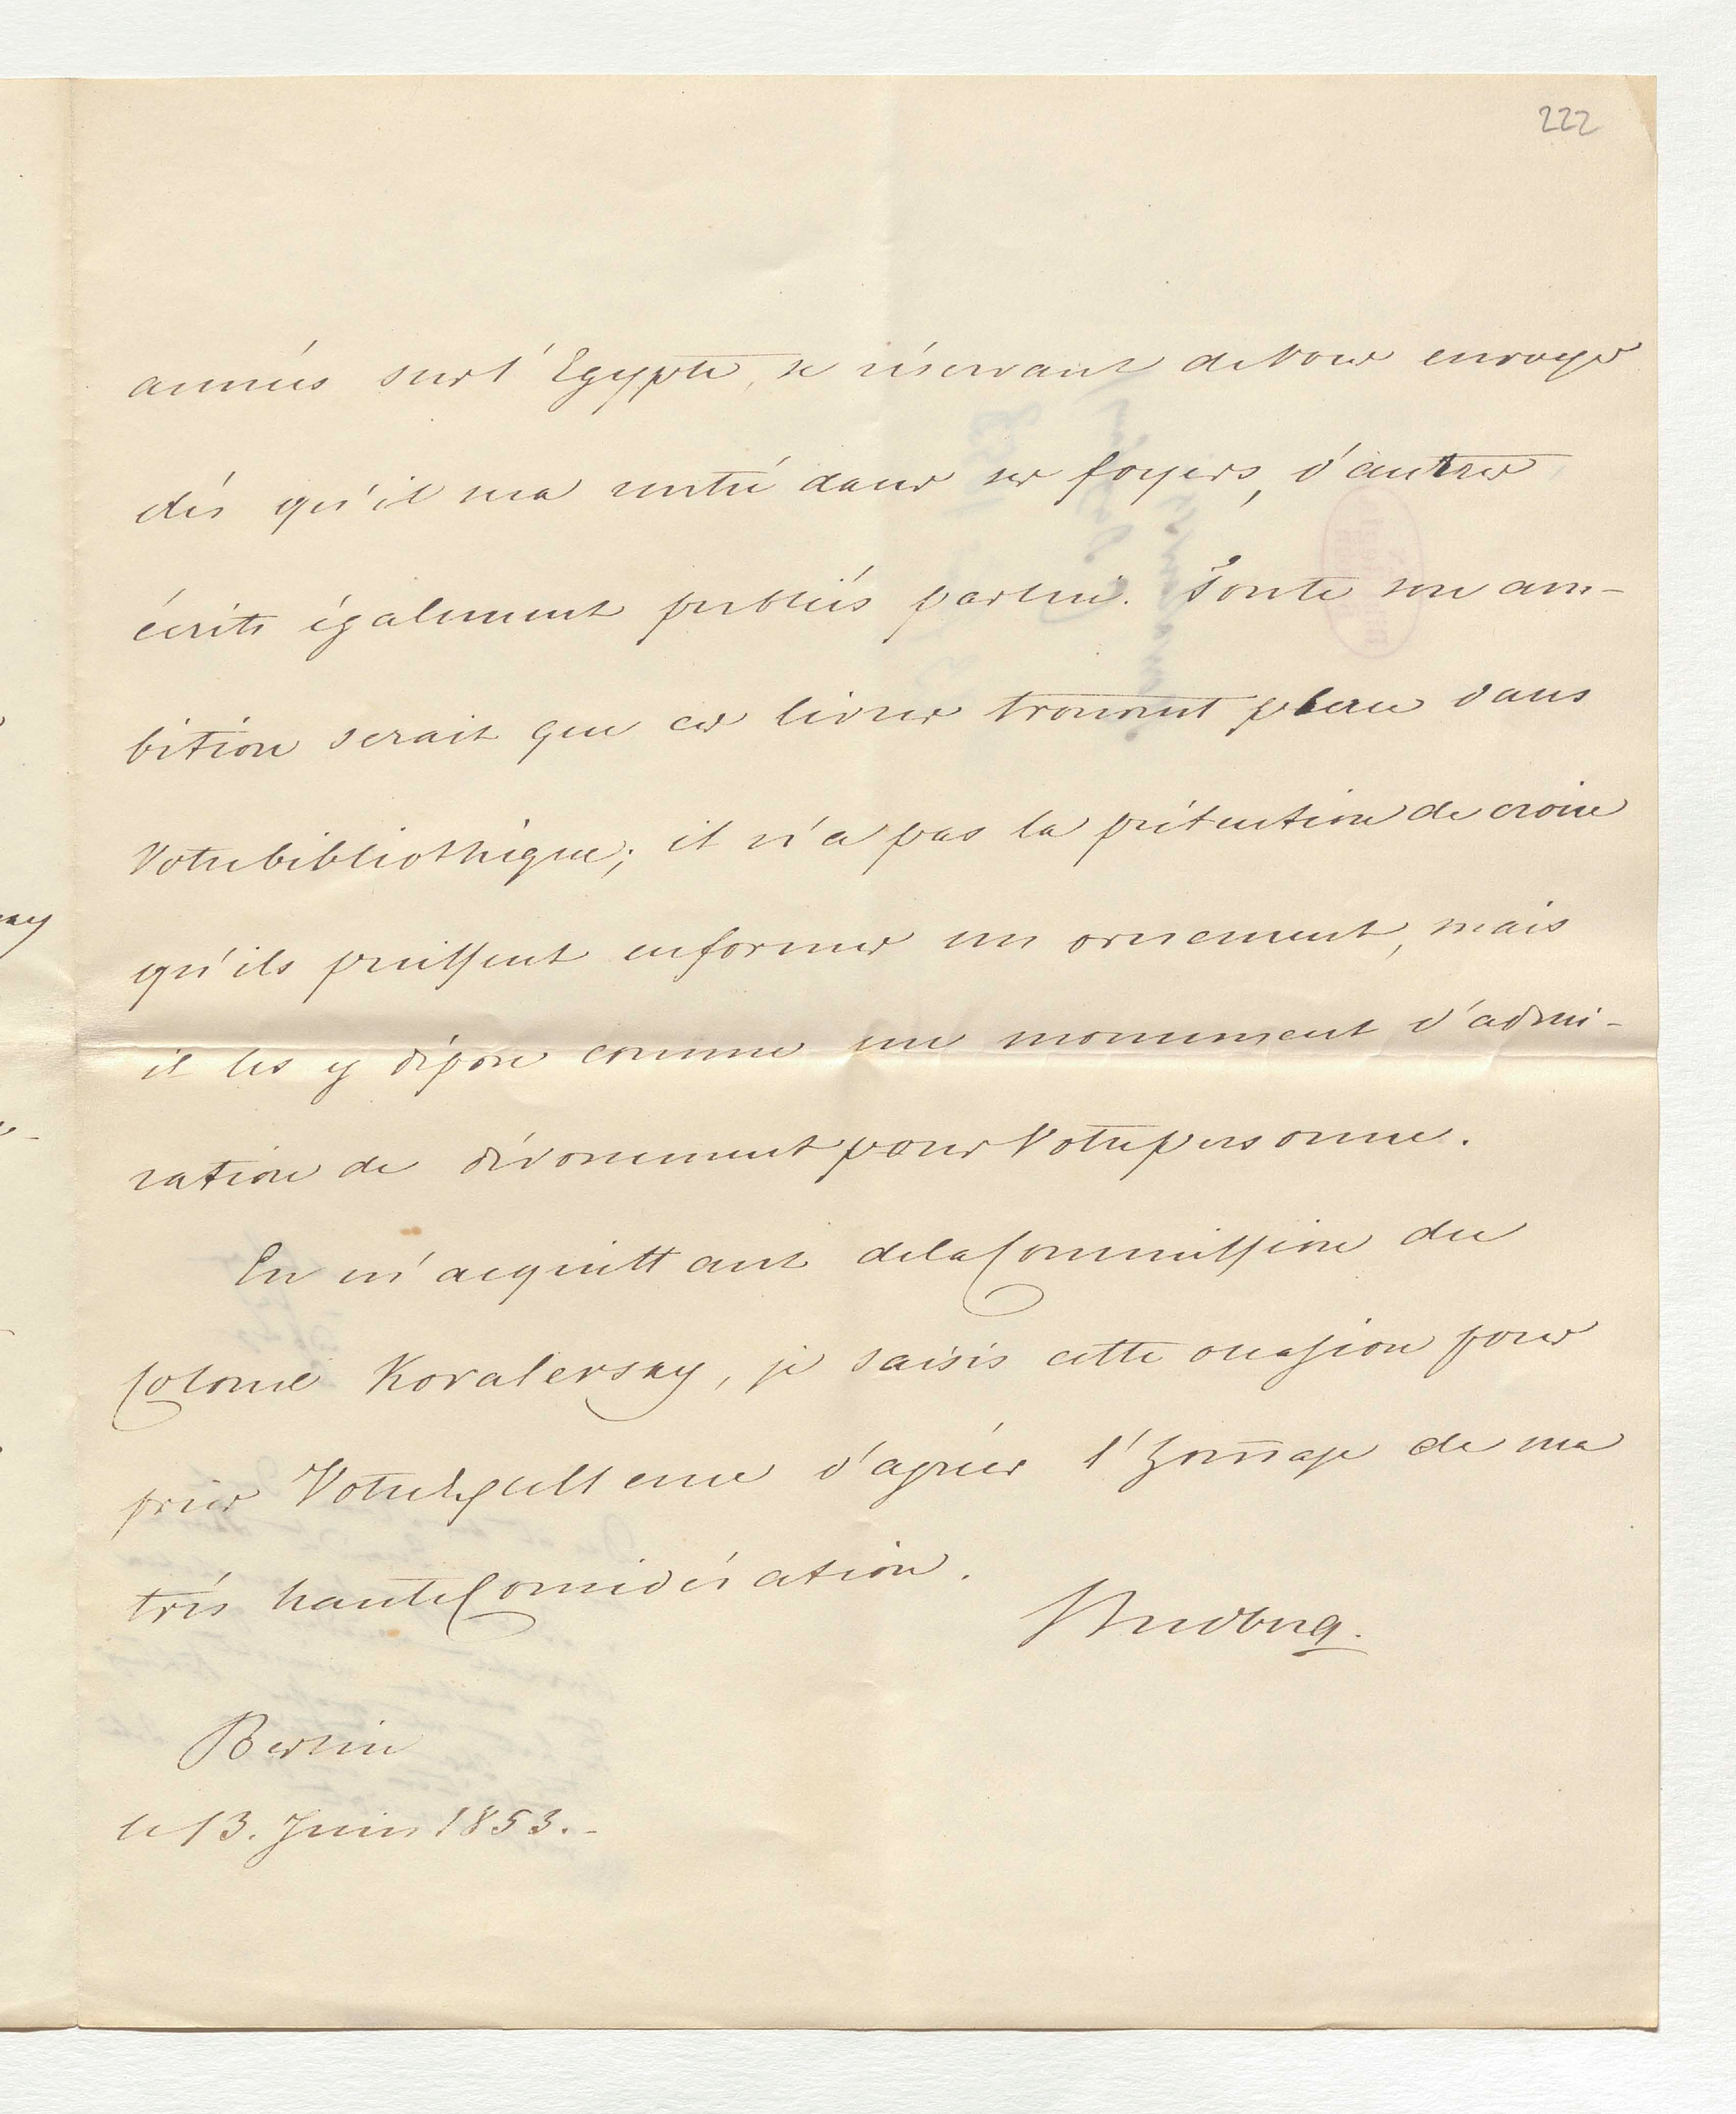 222
années sur l'Egypte, se réservant de Vous envoyer
dès qu'il sera rentré dans ses foyers, d'autres
écrits également publiés par lui. Toute son am-
bition serait que ces livres trouvent place dans
Votre bibliothèque; il n'a pas la prétention de croire
qu'ils puissent en former un ornement, mais
il les y dépose comme un monument d'admi-
ration de dévouement pour Votre personne.
En m'acquittant de la Commission du
Colonel Kovalevsky, je saisis cette occasion pour
prier Votre Excellence d'agréer l'hommage de ma
très haute Considération.
Budberg.
Berlin
le 13. Juin 1853.-